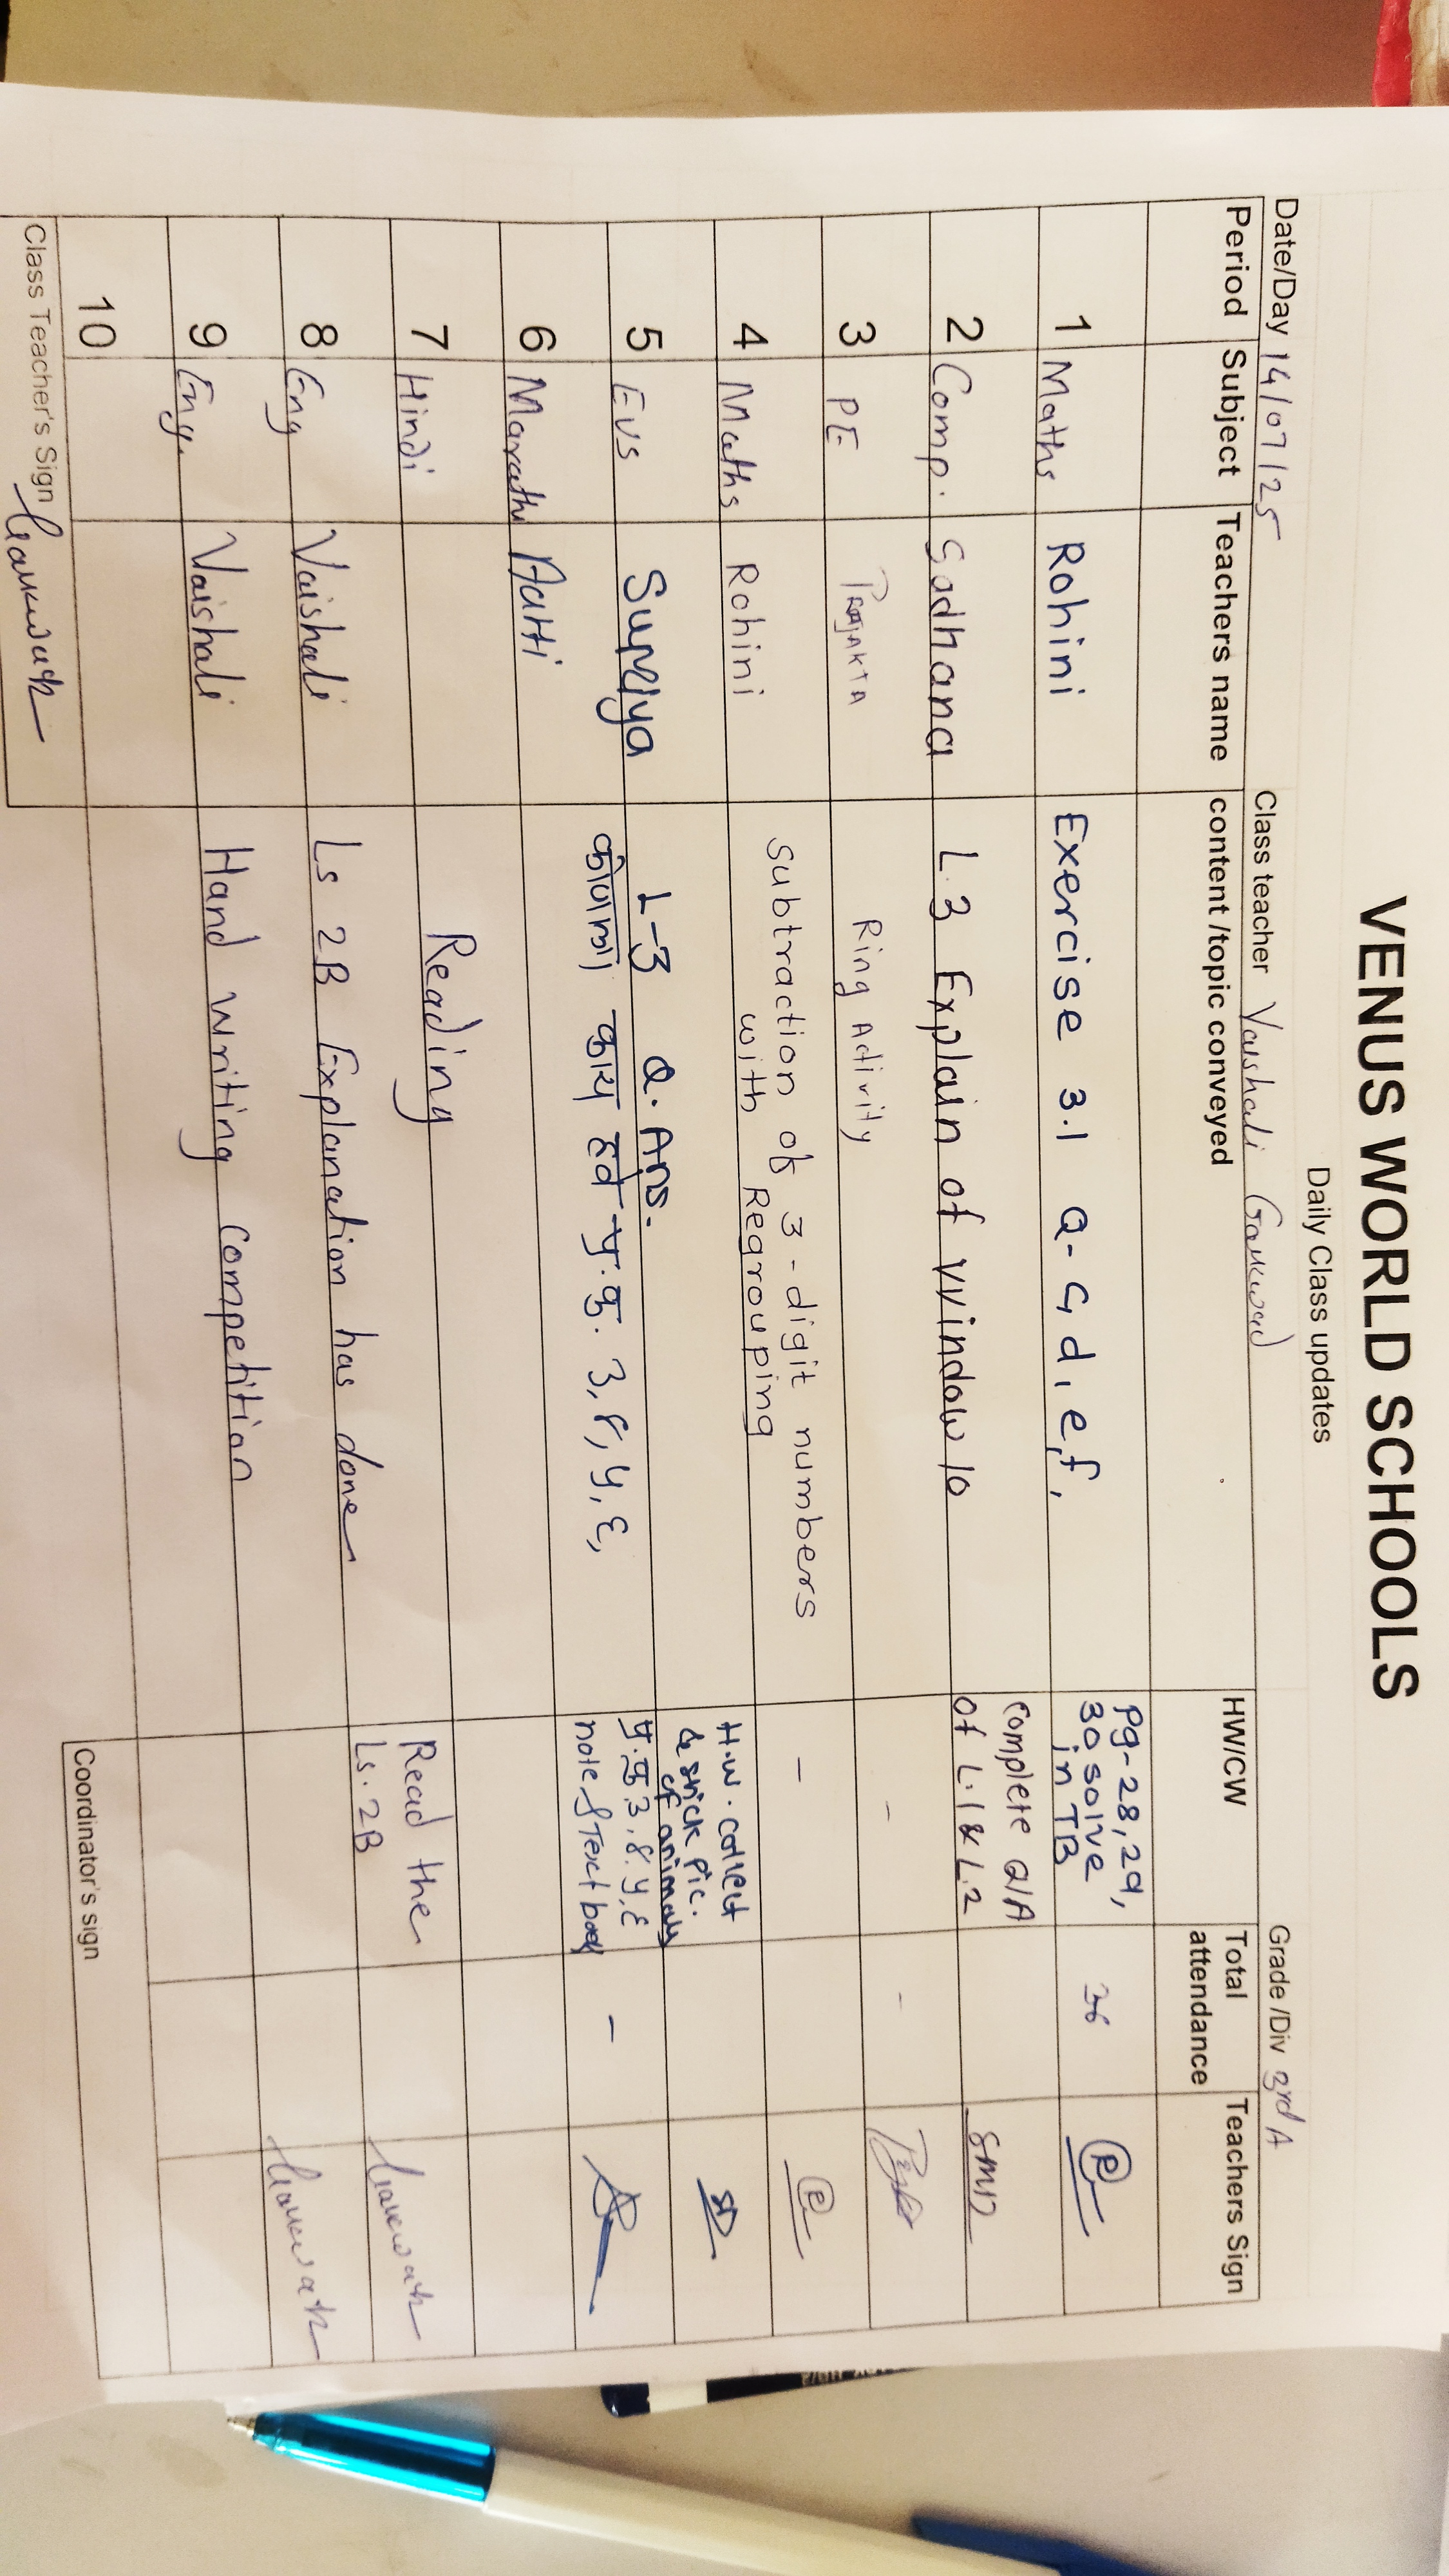 VENUS WORLD SCHOOLS
Daily Class updates
Date/Day 14/07/25 Class teacher Vaishali Gaikwad Grade /Div 3rd A
Period Subject Teachers name content /topic conveyed HW/CW Total attendance Teachers Sign
1 Maths Rohini Exercise 3.1 Q- d, e, f, Pg-28,29, 30 solve in TB 36
2 Comp. Sadhana L.3 Explain of Window 10 complete Q/A of L.1 & L.2
3 PE Prajakta Ring Activity - -
4 Maths Rohini Subtraction of 3-digit numbers with Regrouping -
5 EVS Supriya L-3 Q. Ans. H.W. collect & stick pic. of animals
6 Marathi Aarti कोणाला काय हवे पृ.क्र. ३, ४, ५, ६, पृ.क्र ३, ४, ५, ६ note & Text book -
7 Hindi Reading
8 Eng Vaishali Ls 2B Explanation has done Read the Ls. 2B
9 Eng. Vaishali Hand Writing competition
10
Class Teacher's Sign Coordinator's sign